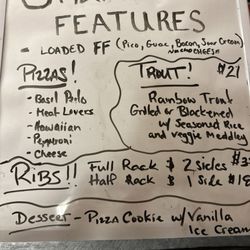 FEATURES
- LOADED FF (Pico, Guac, Bacon, Sour Cream,
NACHO CHEESE)
PIZZAS!
- Basil Pesto
- Meat Lovers
- Hawaiian
- Pepperoni
- Cheese
TROUT! $21
Rainbow Trout
Grilled or Blackened
w/ Seasoned Rice
and Veggie Meddley
RIBS!! Full Rack & 2 Sides
Half Rack & 1 Side $18
Dessert - Pizza Cookie w/ Vanilla
Ice Cream